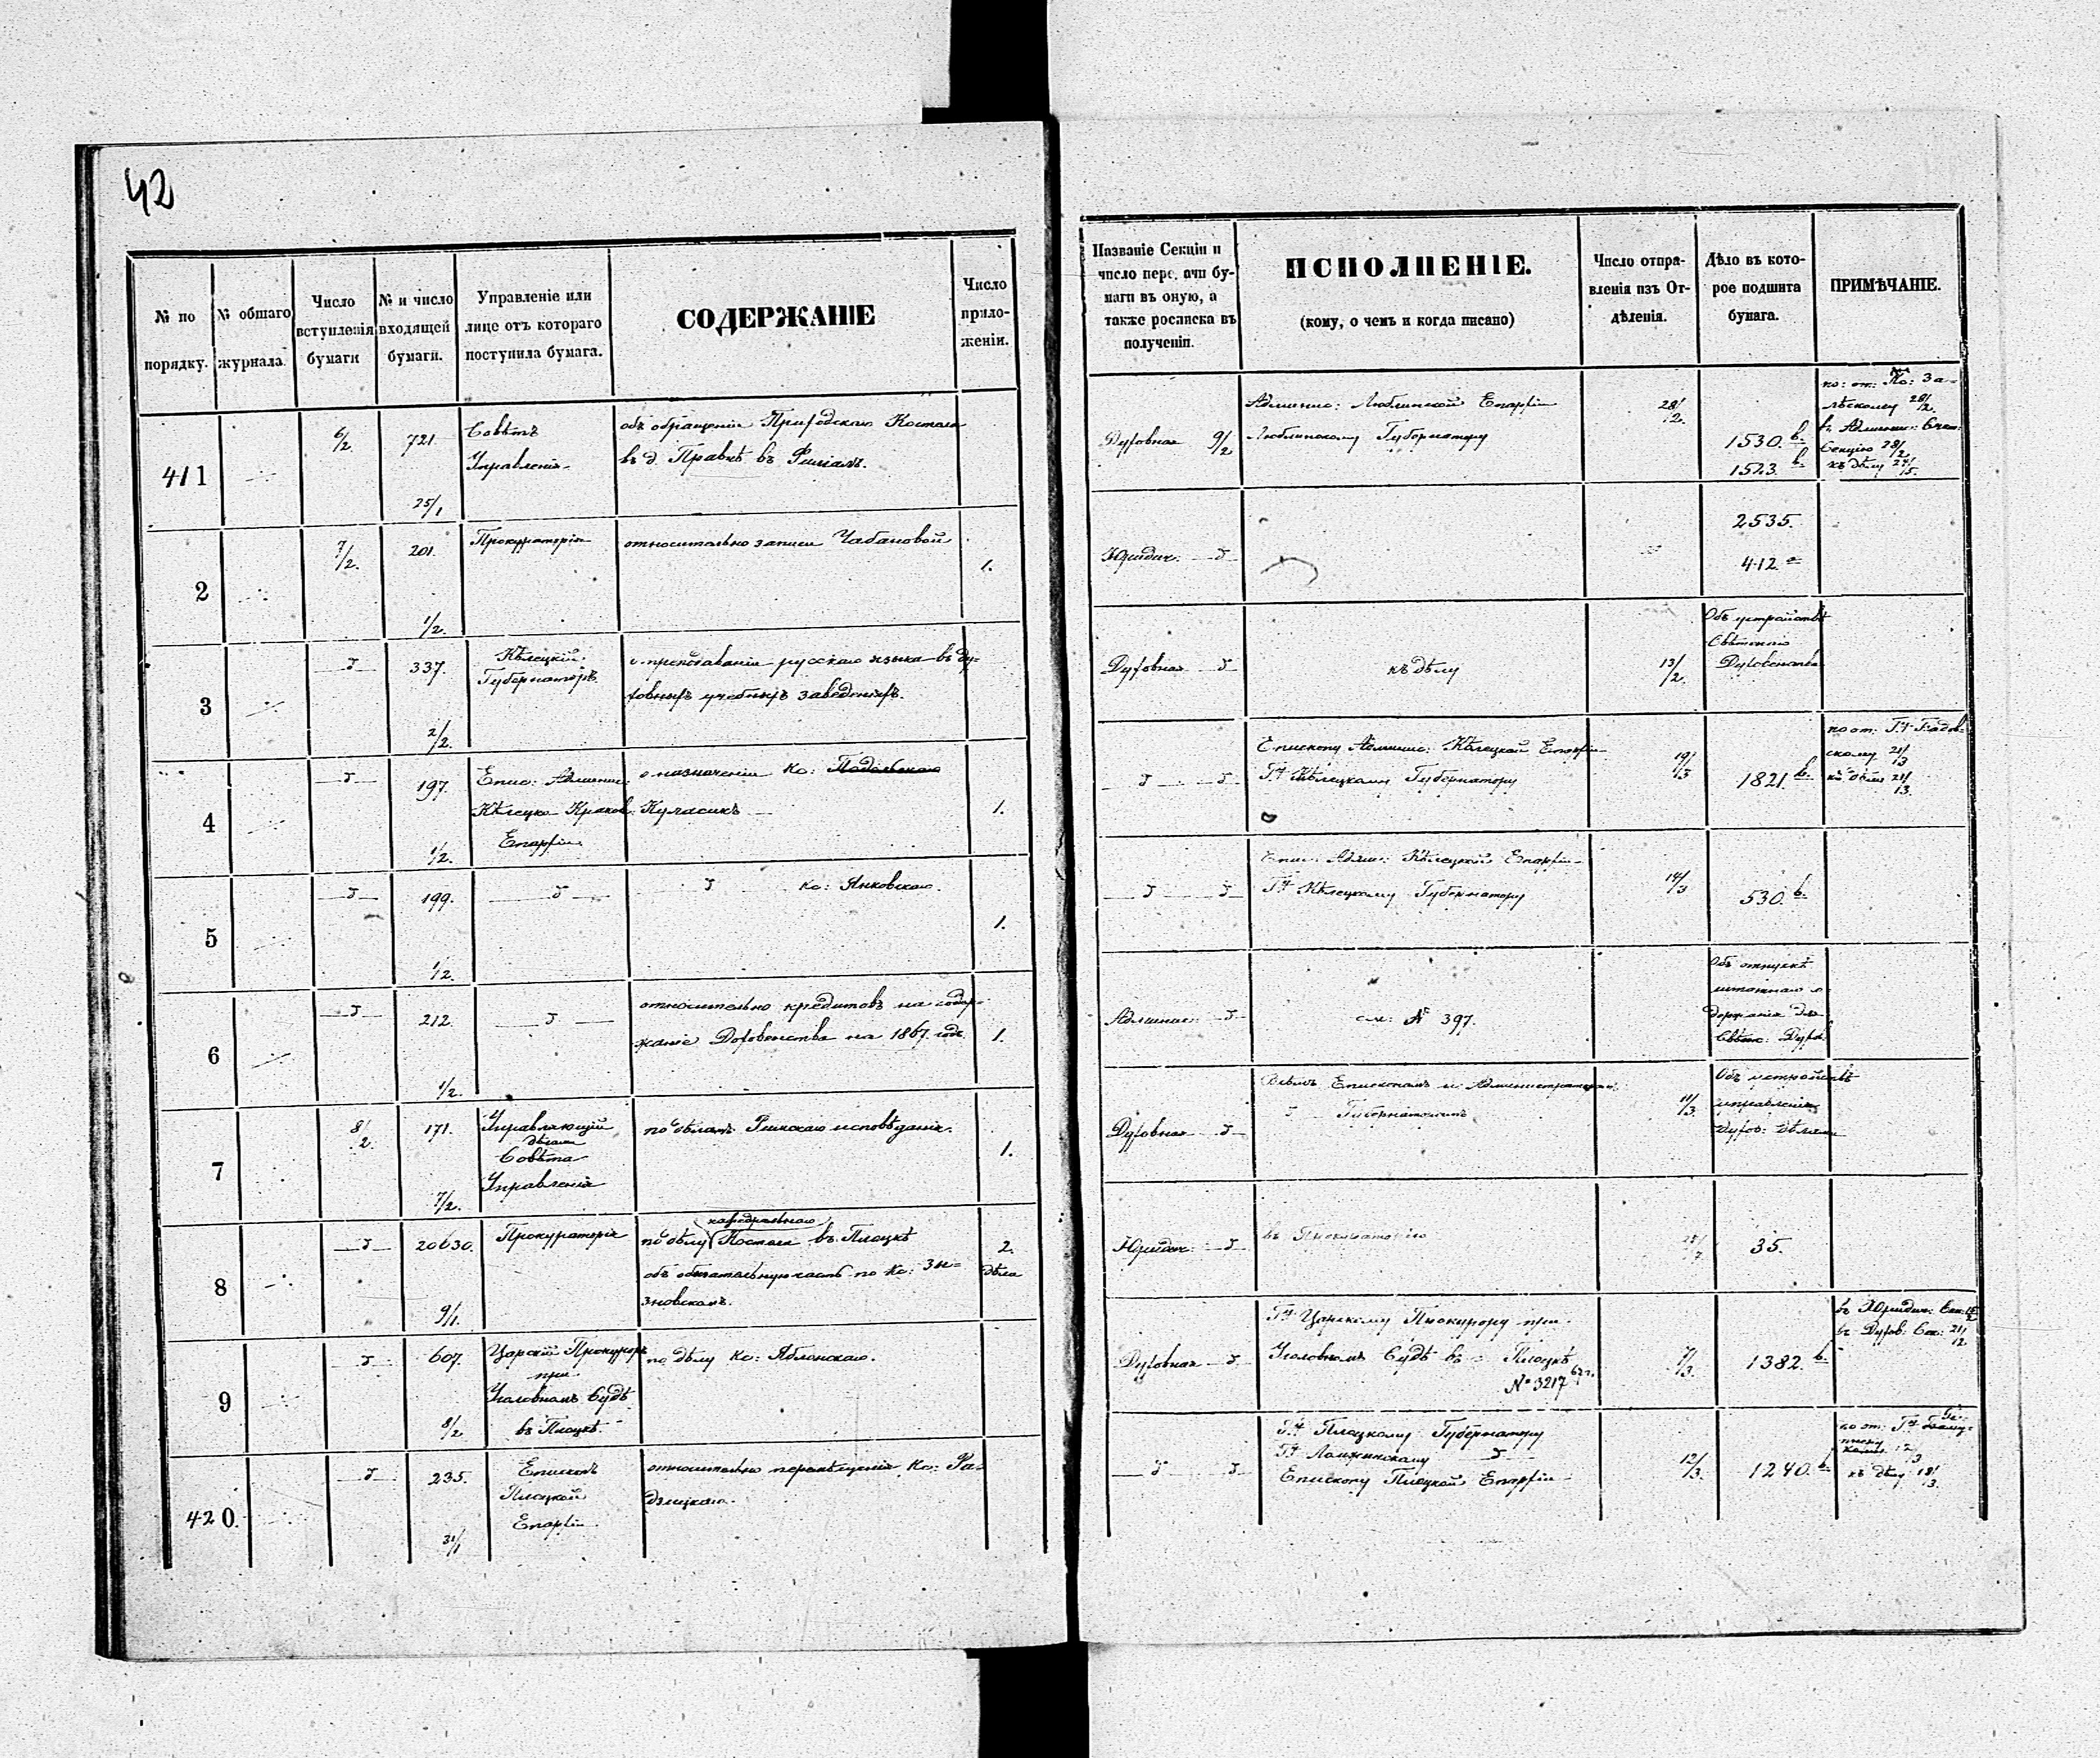 42
№ по порядку.
№ общаго журнала.
Число вступленія бумаги
№ и число входящей бумаги.
Управленіе или лице отъ котораго поступила бумага.
СОДЕРЖАНІЕ
Число приложеніи.
Названіе Секціи и число передачи бумаги въ оную, а также росписка въ полученіи.
ИСПОЛНЕНІЕ.
(кому, о чемъ и когда писано)
Число отправленія изъ Отдѣленія.
Дѣло въ которое подшита бумага.
ПРИМѢЧАНІЕ.
411
6/2
721
25/1
Совѣтъ
Управленія
объ обращеніи Костела
въ д. въ
Духовная 9/2
Админис: Люблинской Епархіи
Люблинскому Губернатору
28/2
1530. b.
1523. b.
28/2
въ Админис:
Секцію 28/2
къ дѣлу
2
7/2.
201.
1/2.
Прокураторія
относительно записи Чабановой
1.
Юридич.
2535.
412
3
337.
2/2.
Кѣлецкій
Губернаторъ
о преподаваніи русскаго языка въ ду-
ховныхъ учебныхъ заведеніяхъ.
Духовная
къ дѣлу
13/2.
Объ устройствѣ
Свѣтскаго
Духовенства
4
197.
1/2.
Епис: Админис:
Кѣлецко Краков:
Епархіи
о назначеніи Кс: Подольскаго
1.
Епископу Админис: Кѣлецкой Епархіи
Гну Кѣлецкому Губернатору
19/3
1821. b.
по от: Гну
скому 21/3
къ дѣлу 21/3.
5
199.
1/2.
Кс: Янковскаго.
1.
Епис: Адми: Кѣлецкой Епархіи
Гну Кѣлецкому Губернатору
14/3
530. b.
6
212.
1/2.
относительно кредитовъ на содер-
жаніе Духовенства на 1867. годъ
1.
Админис:
см: № 397.
Объ отпускѣ
штатнаго со-
держанія для
Свѣтс: Духов:
7
8/2
171.
7/2.
Управляющій
дѣлами
Совѣта
Управленія
по дѣламъ Римскаго исповѣданія.
1.
Духовная
Всѣмъ Епископамъ и Администраторамъ
Губернаторамъ
11/3.
Объ устройствѣ
управленія
Духов: дѣлами
8
20630.
9/1.
Прокураторія
кафедральнаго
по дѣлу Костела въ Плоцкѣ
2.
дѣла
Юридич:
въ Прокураторію
35.
9
607.
8/2
Царскій Прокуроръ
при
Уголовномъ Судѣ
въ Плоцкѣ.
по дѣлу Кс: Яблонскаго.
Духовная
Гну Царскому Прокурору при
Уголовномъ Судѣ въ Плоцкѣ
№ 3217 67 г.
7/3.
1382. b.
въ Юридич: Сек:
въ Духов: Сек:
420.
235.
31/1
Епископъ
Плоцкой
Епархіи
относительно перемѣщенія Кс: Ра-
Гну Плоцкому Губернатору
Гну Ломжинскому
Епископу Плоцкой Епархіи
12/3.
1240. b.
по от: Гну
къ дѣлу 18/3.